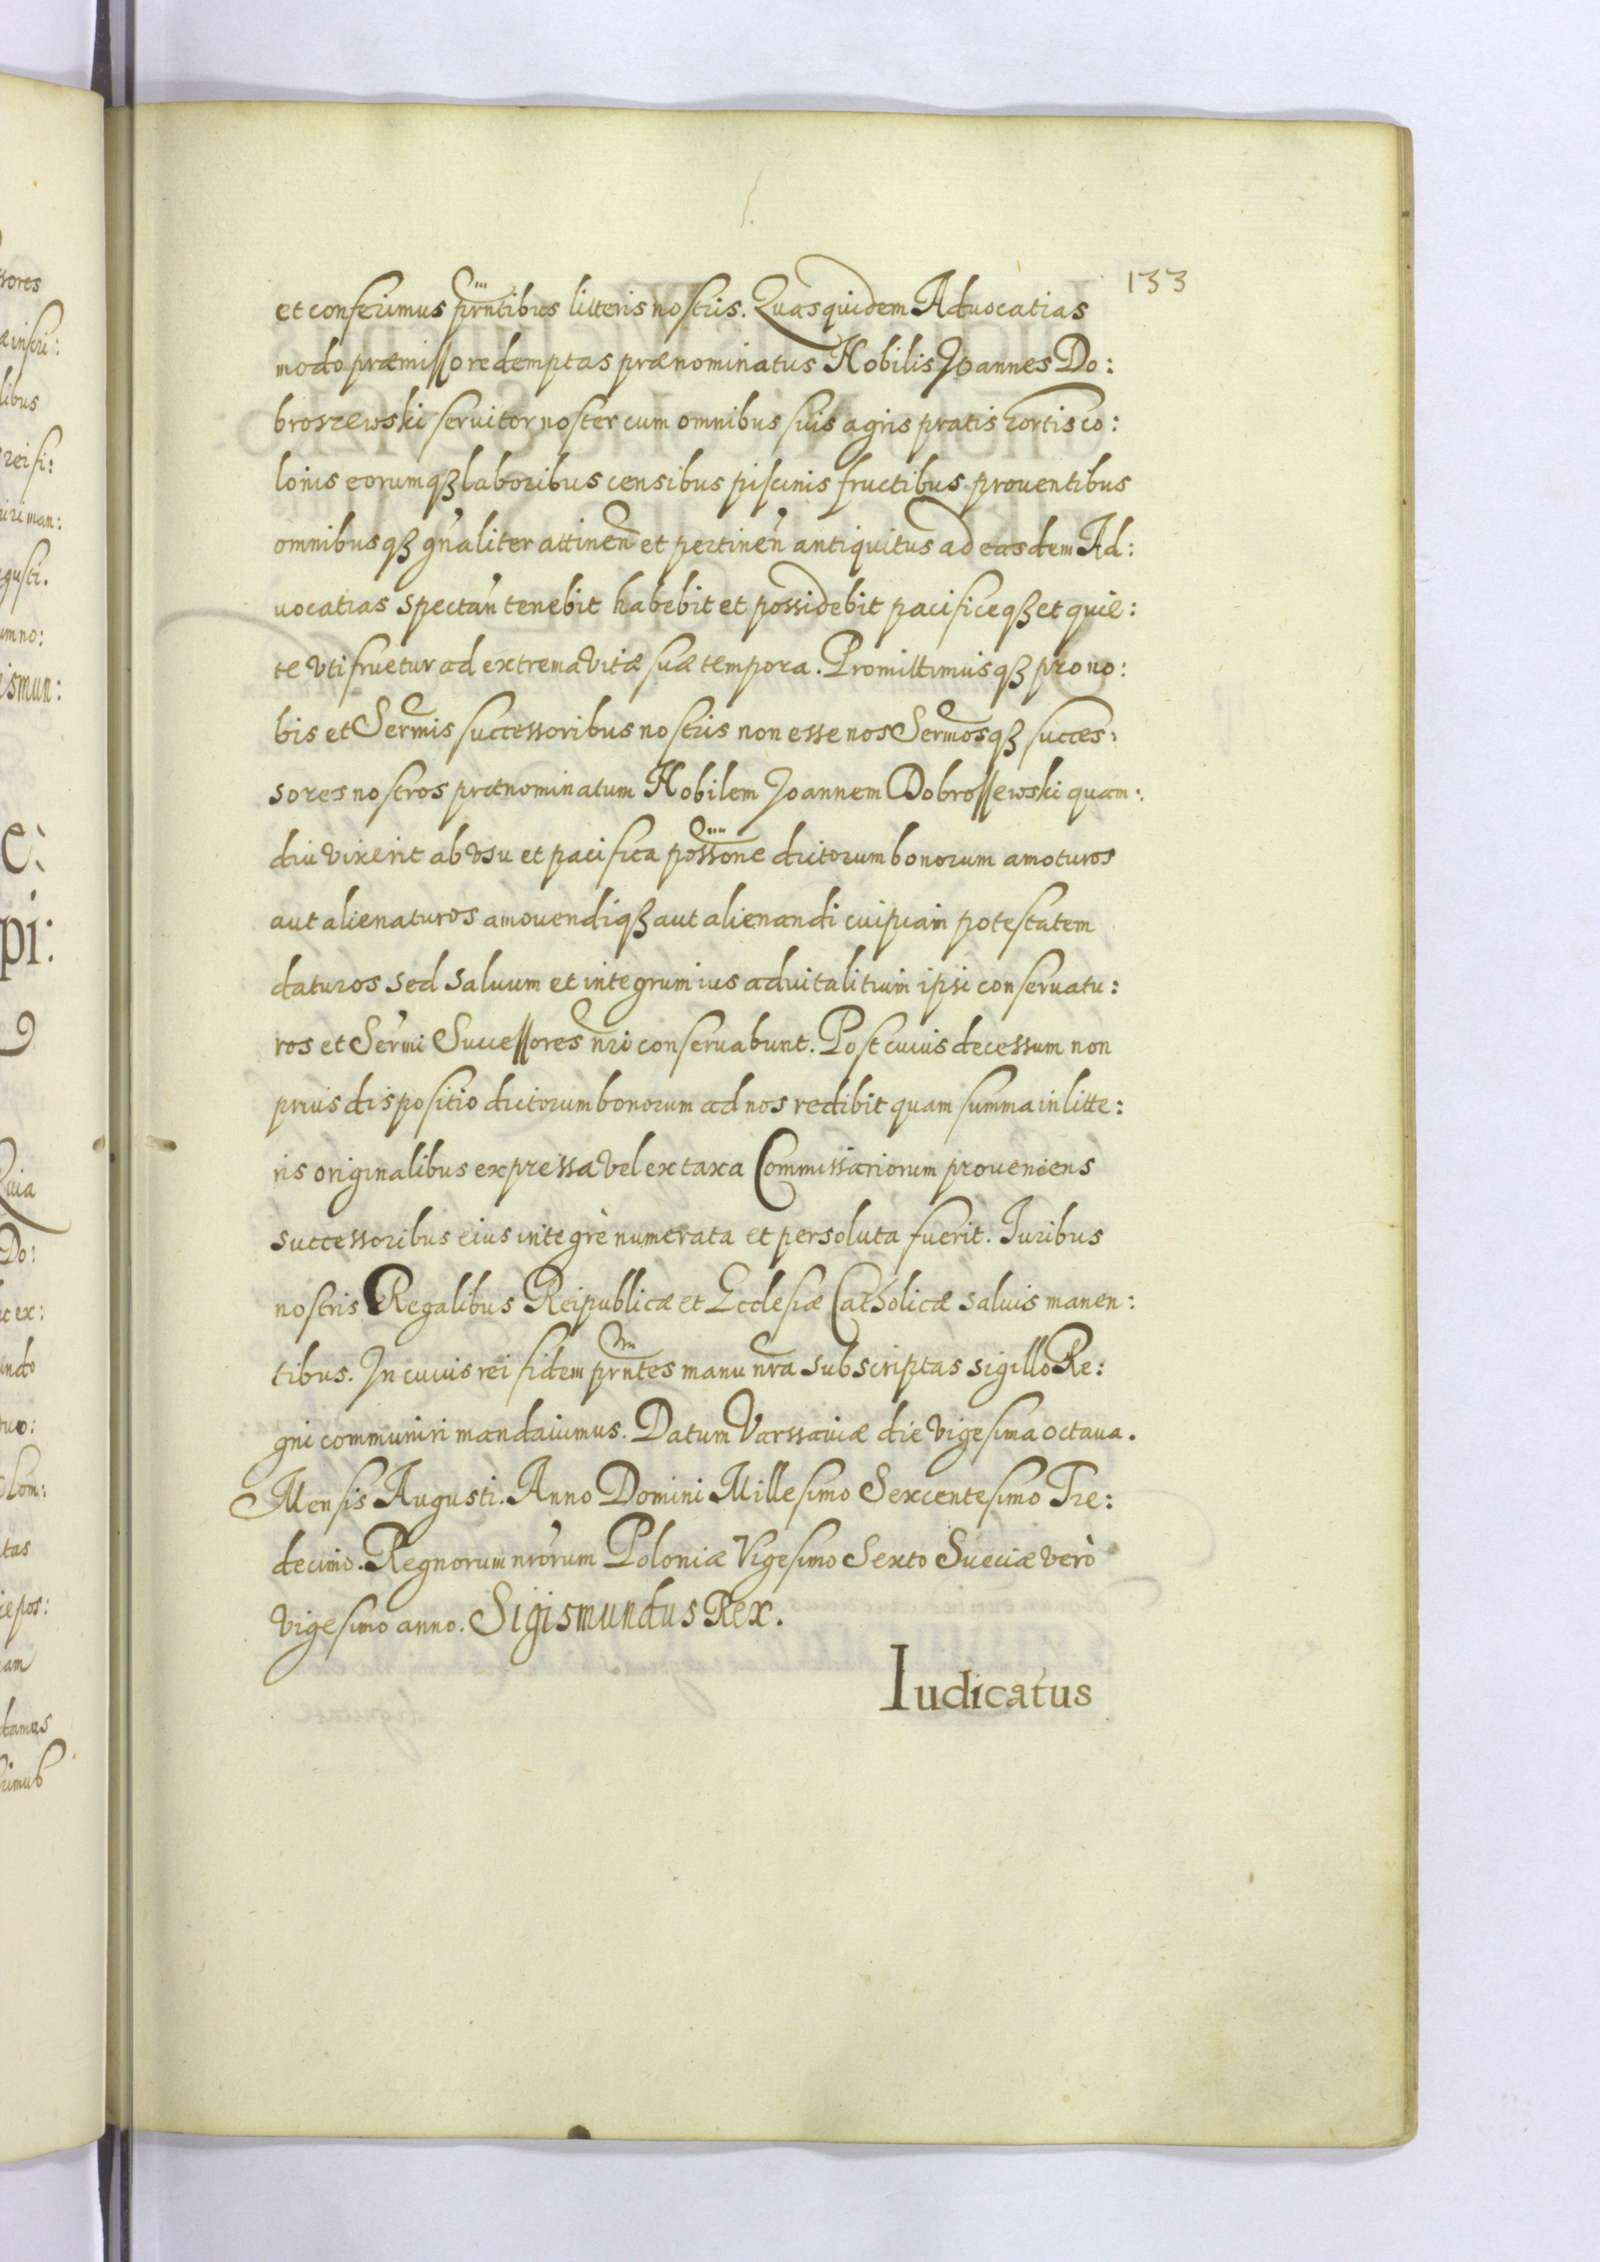 133
et conferimus prntibus litteris nostris. Quas quidem Aduocatias
modo præmisso redemptas prænominatus Nobilis Joannes Do:
broszewski seruitor noster cum omnibus suis agris pratis hortis co:
lonis eorumqȝ laboribus censibus piscinis fructibus prouentibus
omnibusqȝ gn̄aliter attinen̄ et pertinen̄ antiquitus ad easdem Ad:
uocatias spectan̄ tenebit habebit et possidebit pacificeqȝ et quie:
te vti fruetur ad extrema vitæ suæ tempora. Promittimusqȝ pro no:
bis et Sermis successoribus nostris non esse nos Sermosqȝ succes:
sores nostros prænominatum Nobilem Joannem Dobrossewski quam:
diu vixerit ab vsu et pacifica possone dictorum bonorum amoturos
aut alienaturos amouendiqȝ aut alienandi cuipiam potestatem
daturos sed saluum et integrum ius aduitalitium ipsi conseruatu:
ros et Sermi Successores nri conseruabunt. Post cuius decessum non
prius dispositio dictorum bonorum ad nos redibit quam summa in litte:
ris originalibus expressa vel ex taxa Commissariorum proueniens
successoribus eius integrè numerata et persoluta fuerit. Iuribus
nostris Regalibus Reipublicæ et Ecclesiæ Catholicæ saluis manen:
tibus. In cuius rei fidem prntes manu nra subscriptas sigillo Re:
gni communiri mandauimus. Datum Varssauiæ die vigesima octaua.
Mensis Augusti. Anno Domini Millesimo Sexcentesimo Tre:
decimo. Regnorum nrorum Poloniæ Vigesimo Sexto Sueciæ verò
vigesimo anno. Sigismundus Rex.
Iudicatus